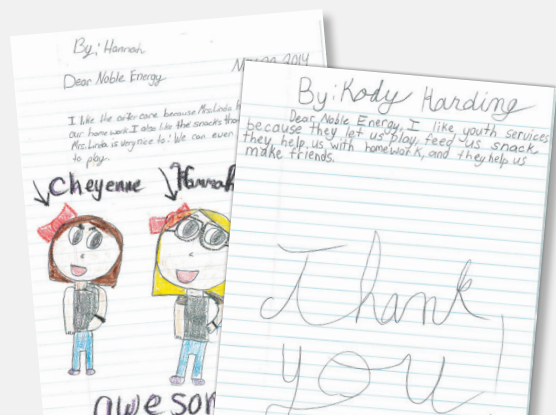 By: Hannah
2014
Dear Noble Energy
I like the after care because Mrs. Linda
our homework. I also like the snacks
Mrs. Linda is very nice to! We can even
to play.
Cheyenne
Hannah
awesom
By: Kody Harding
Dear Noble Energy, I like youth services
because they let us play, feed us snack
they help us with homework, and they help us
make friends.
Thank
you